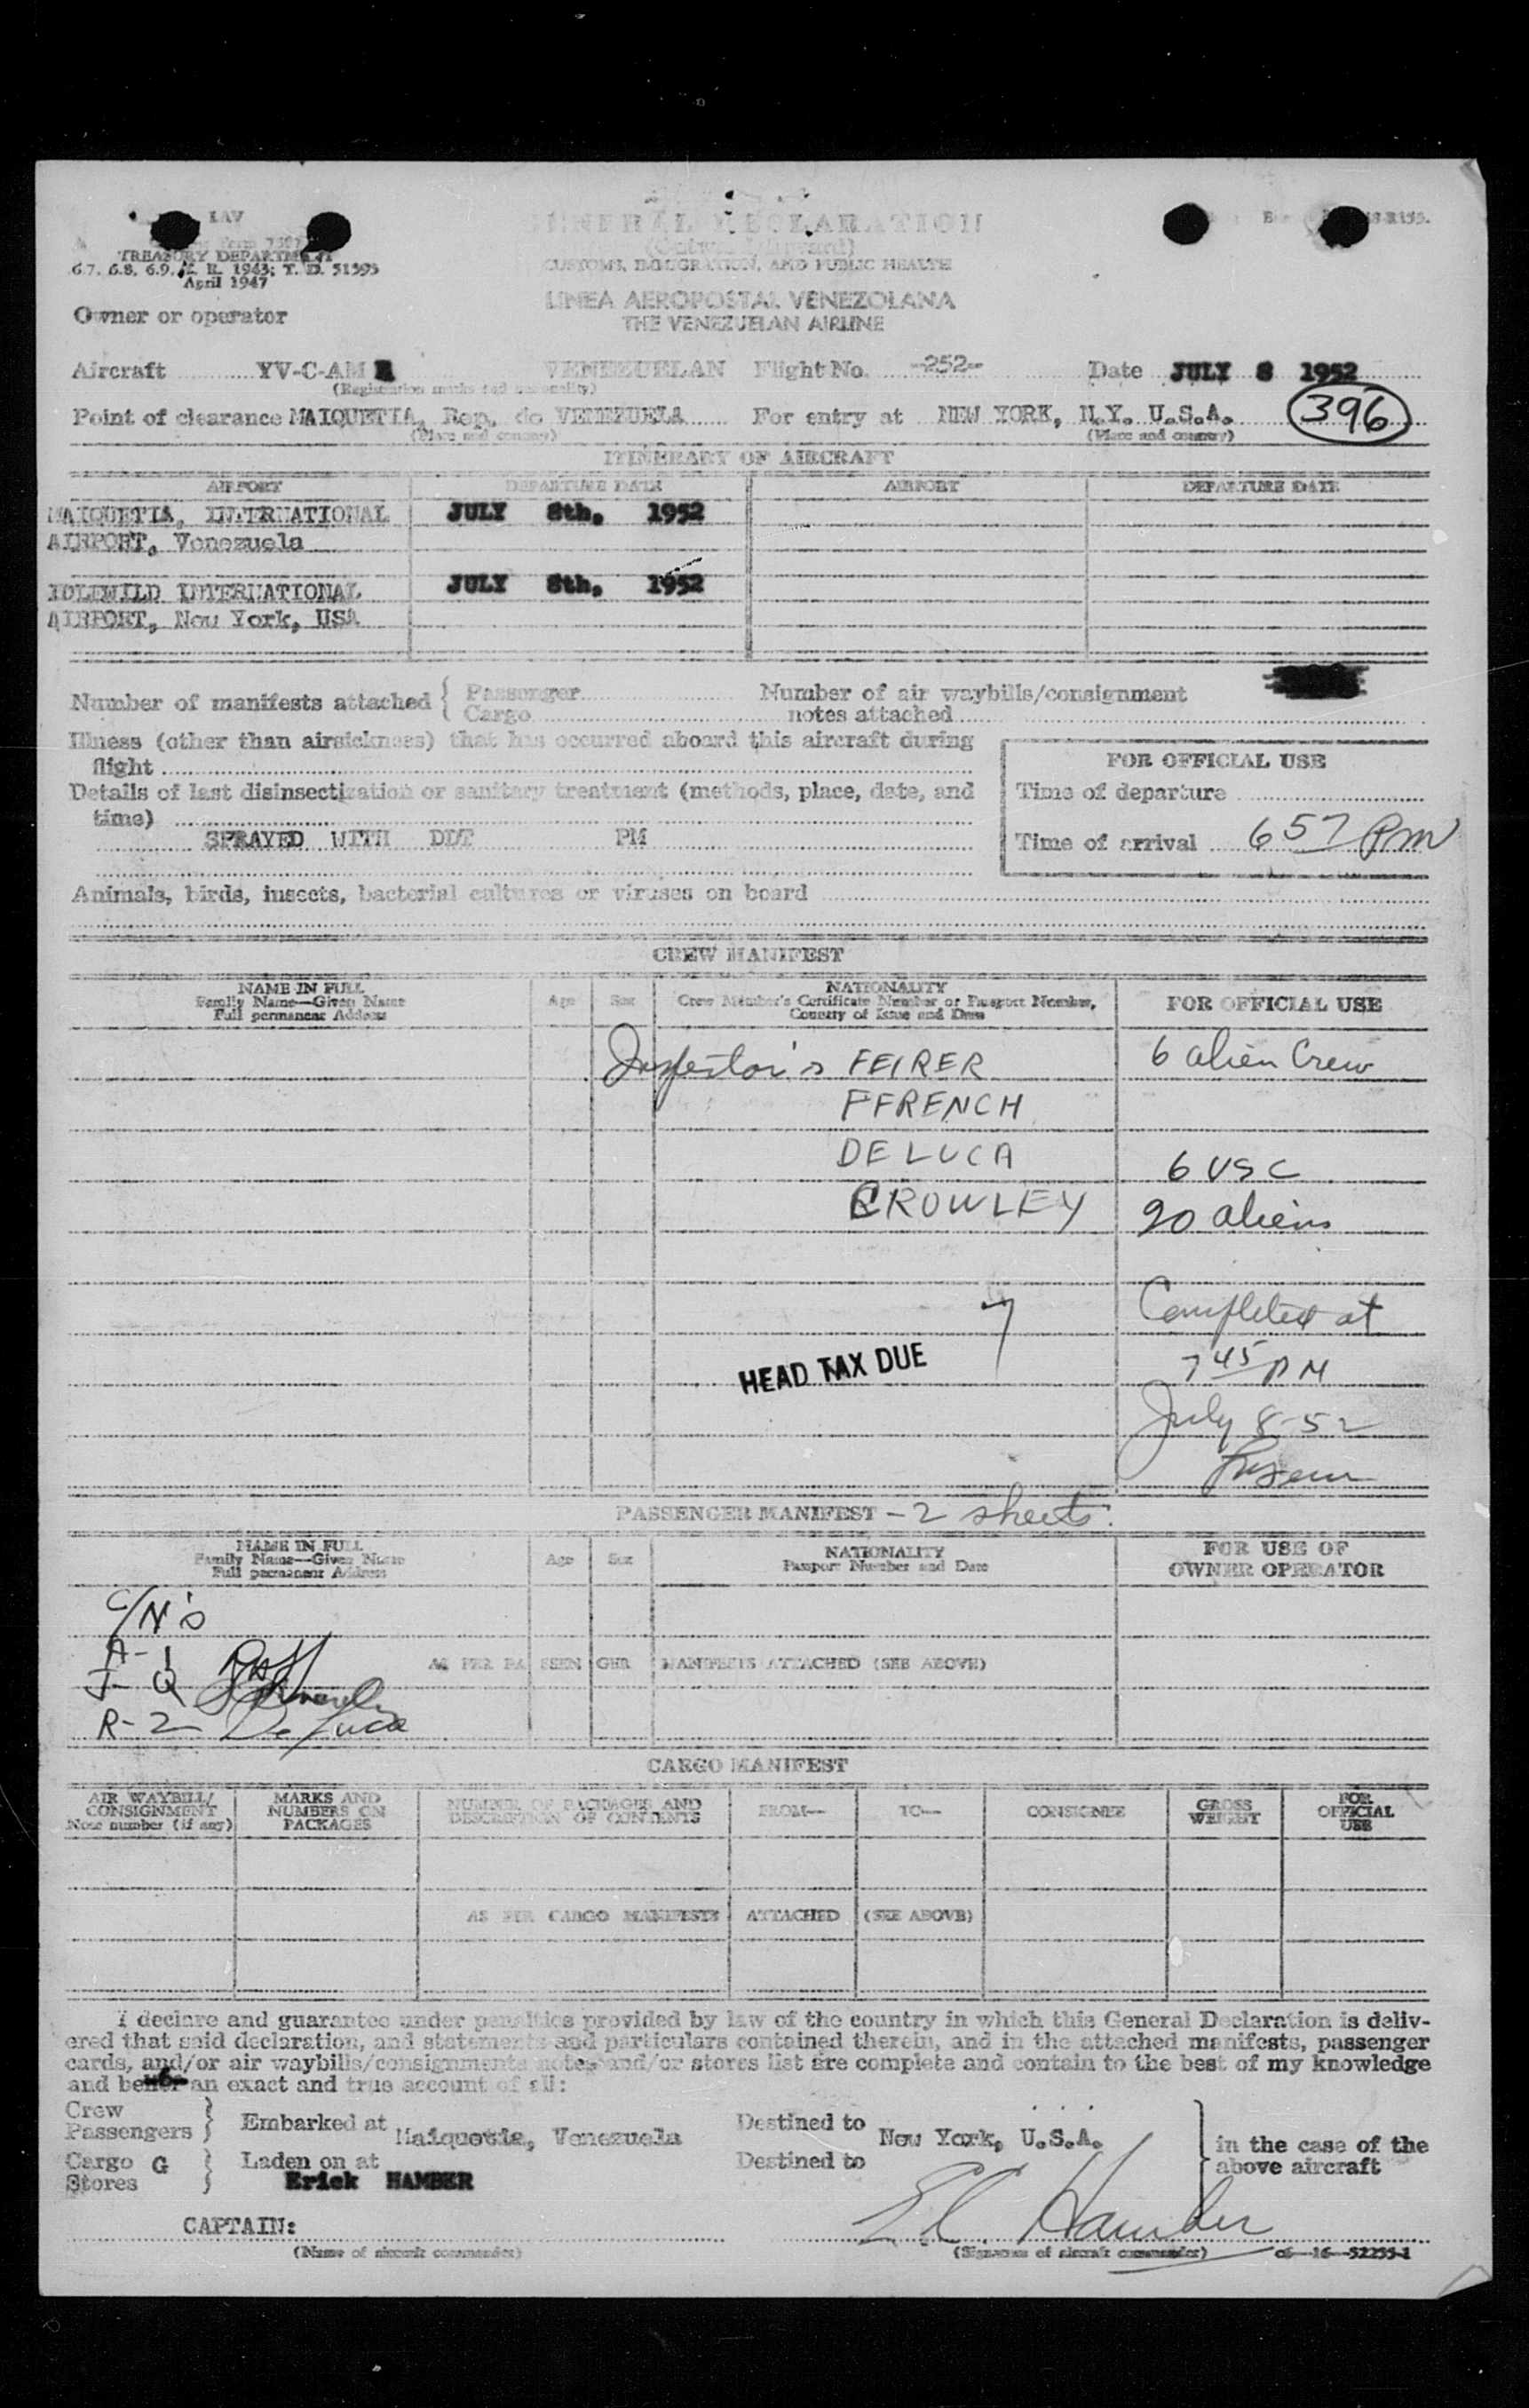 LAV
TREASURY DEPARTMENT
6.7, 6.8, 6.9, C. R. 1943; T. D. 51393
April 1947
GENERAL DECLARATION
CUSTOMS, IMMIGRATION, AND PUBLIC HEALTH
LINEA AEROPOSTAL VENEZOLANA
THE VENEZUELAN AIRLINE
Owner or operator
Aircraft YV-C-AM VENEZUELAN Flight No. -252- Date JULY 8 1952
(Registration marks and nationality)
Point of clearance MAIQUETIA, Rep. de VENEZUELA For entry at NEW YORK, N.Y. U.S.A. 396
(Place and country) (Place and country)
ITINERARY OF AIRCRAFT
AIRPORT DEPARTURE DATE AIRPORT DEPARTURE DATE
MAIQUETIA, INTERNATIONAL JULY 8th, 1952
AIRPORT, Venezuela
IDLEWILD INTERNATIONAL JULY 8th, 1952
AIRPORT, New York, USA
Number of manifests attached { Passenger Number of air waybills/consignment
Cargo notes attached
Illness (other than airsickness) that has occurred aboard this aircraft during
flight
Details of last disinsectization or sanitary treatment (methods, place, date, and
time)
SPRAYED WITH DDT PM
FOR OFFICIAL USE
Time of departure
Time of arrival 6 57 PM
Animals, birds, insects, bacterial cultures or viruses on board
CREW MANIFEST
NAME IN FULL
Family Name—Given Name
Full permanent Address
Age Sex
NATIONALITY
Crew Member's Certificate Number or Passport Number,
Country of Issue and Date
FOR OFFICIAL USE
Inspector's FEIRER 6 alien Crew
FFRENCH
DE LUCA 6 USC
CROWLEY 20 aliens
7 Completed at
HEAD TAX DUE 7 45 PM
July 8-52
PASSENGER MANIFEST - 2 sheets.
NAME IN FULL
Family Name—Given Name
Full permanent Address
Age Sex
NATIONALITY
Passport Number and Date
FOR USE OF
OWNER OPERATOR
C/N's
A-1
J- Q
R-2 De Luca
AS PER PASSENGER MANIFESTS ATTACHED (SEE ABOVE)
CARGO MANIFEST
AIR WAYBILL/
CONSIGNMENT
Note number (if any)
MARKS AND
NUMBERS ON
PACKAGES
NUMBER OF PACKAGES AND
DESCRIPTION OF CONTENTS
FROM— TO— CONSIGNEE
GROSS
WEIGHT
FOR
OFFICIAL
USE
AS PER CARGO MANIFESTS ATTACHED (SEE ABOVE)
I declare and guarantee under penalties provided by law of the country in which this General Declaration is deliv-
ered that said declaration, and statements and particulars contained therein, and in the attached manifests, passenger
cards, and/or air waybills/consignments notes and/or stores list are complete and contain to the best of my knowledge
and belief an exact and true account of all:
Crew
Passengers } Embarked at Maiquetia, Venezuela Destined to New York, U.S.A.
Cargo G
Stores } Laden on at Destined to
in the case of the
above aircraft
Erick HAMBER
CAPTAIN: E C Hamber
(Name of aircraft commander) (Signature of aircraft commander) c6—16—52255-1